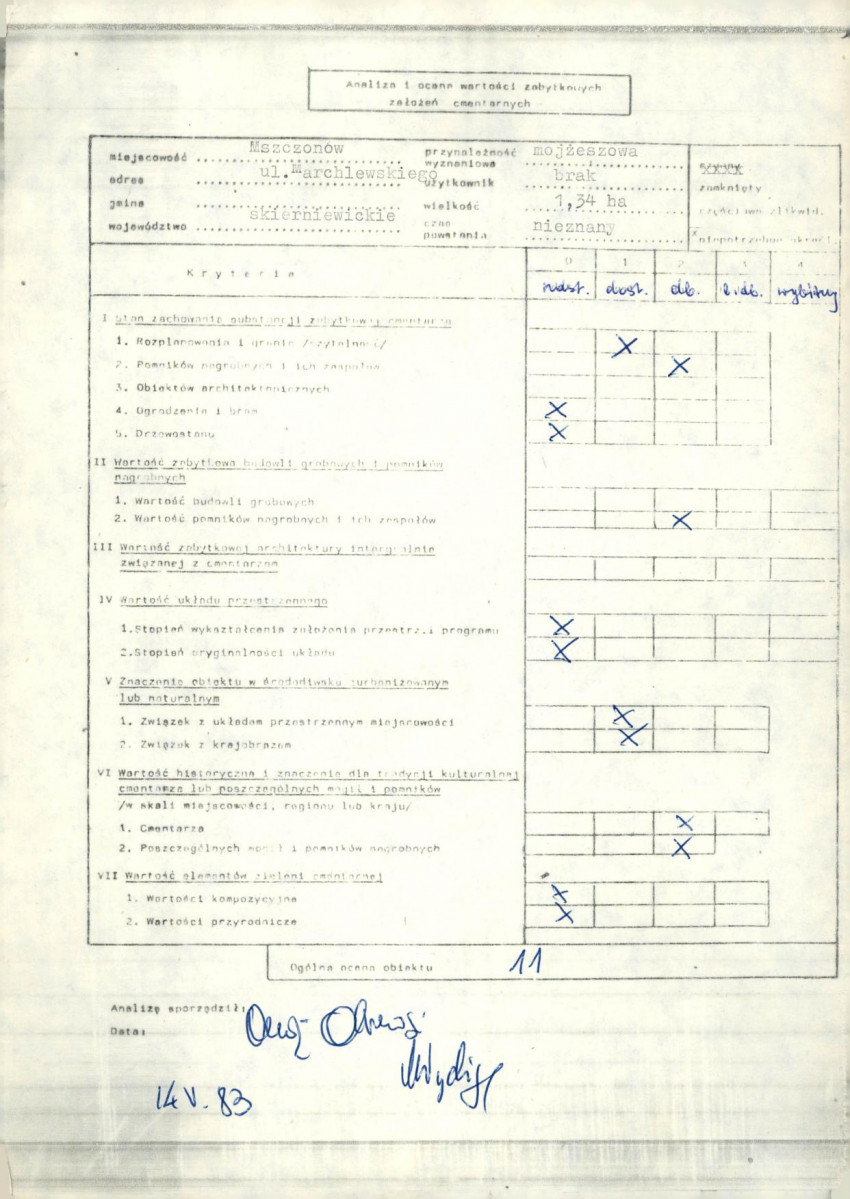 Analiza i ocena wartości zabytkowych
założeń cmentarnych
miejscowość Mszczonów
adres ul.Marchlewskiego
gmina
województwo skierniewickie
przynależność wyznaniowa mojżeszowa
użytkownik brak
wielkość 1,34 ha
czas powstania nieznany
czynny
zamknięty
częściowo zlikwid.
x niepotrzebne skreśl.
Kryteria
0 1 2 3 4
ndst. dost. db. b.db. wybitny
I Stan zachowania substancji zabytkowej cmentarza
1. Rozplanowania i granic /czytelność/ X
2. Pomników nagrobnych i ich zespołów X
3. Obiektów architektonicznych
4. Ogrodzenia i bram X
5. Drzewostanu X
II Wartość zabytkowa budowli grobowych i pomników
nagrobnych
1. Wartość budowli grobowych
2. Wartość pomników nagrobnych i ich zespołów X
III Wartość zabytkowej architektury integralnie
związanej z cmentarzem
IV Wartość układu przestrzennego
1.Stopień wykształcenia założenia przestrz.i programu X
2.Stopień oryginalności układu X
V Znaczenie obiektu w środowisku zurbanizowanym
lub naturalnym
1. Związek z układem przestrzennym miejscowości X
2. Związek z krajobrazem X
VI Wartość historyczna i znaczenie dla tradycji kulturalnej
cmentarza lub poszczególnych mogił i pomników
/w skali miejscowości, regionu lub kraju/
1. Cmentarza X
2. Poszczególnych mogił i pomników nagrobnych X
VII Wartość elementów zieleni cmentarnej
1. Wartości kompozycyjne X
2. Wartości przyrodnicze X
Ogólna ocena obiektu 11
Analizę sporządził:
Data:
14 V. 83